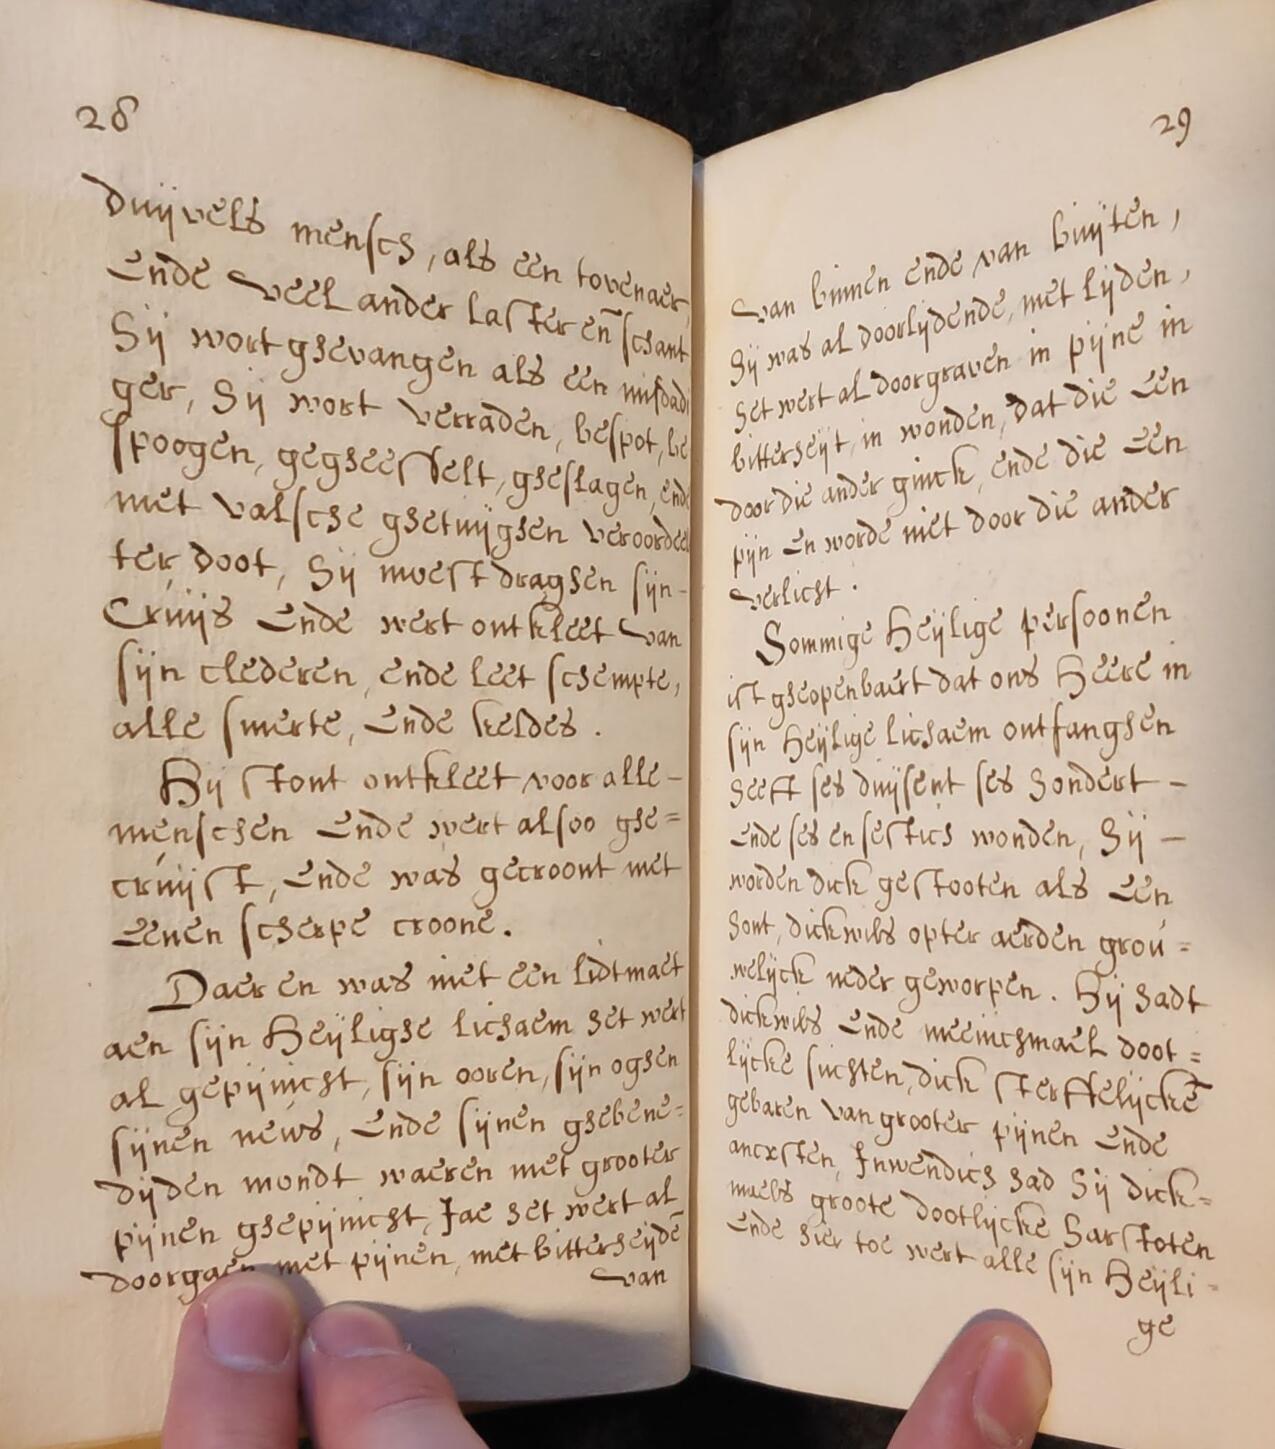 28
duijvels mensch, als een tovenaer,
Ende veel ander lasteren̄ schant
Hij wort ghevangen als een misdadi
ger, Hij wort verraden, bespot, be
spoogen, gegheesselt, gheslagen, ende
met valsche ghetuijghen veroordeel
ter doot, Hij moest draghen sijn-
Cruijs Ende wert ontkleet van
sijn clederen, ende leet schempte,
alle smerte, Ende keldes.
Hij stont ontkleet voor alle-
menschen Ende wert alsoo ghe=
cruijst, Ende was gecroont met
Eenen scherpe croone.
Daer en was niet een lidtmaet
aen sijn Heijlighe lichaem het wert
al gepijnicht, sijn ooren, sijn oghen
sijnen news, Ende sijnen ghebene=
dijden mondt waeren met grooter
pijnen ghepijnicht, Jae het wert al
doorgaen met pijnen, met bitterheijdē
van
29
van binnen ende van buijten,
Hij was al doorlijdende, met lijden,
het wert al doorgraven in pijne in
bitterheijt, in wonden, dat die Een
door die ander ginck, ende die Een
pijn En worde niet door die ander
verlicht.
Sommige Heijlige persoonen
ist gheopenbaert dat ons Heere in
sijn Heijlige lichaem ontfanghen
heeft ses duijsent ses hondert -
Ende ses en sestich wonden, Hij -
worden dick gestooten als Een
hont, dickwils opter aerden grou=
welijck neder geworpen. Hij hadt
dickwils Ende meenichmael doot=
lijcke suchten, dick sterffelijckē
gebaren van grooter pijnen Ende
ancxsten, Inwendich had Hij dick=
maels groote dootlijcke Harstoten
Ende hier toe wert alle sijn Heijli-
ge